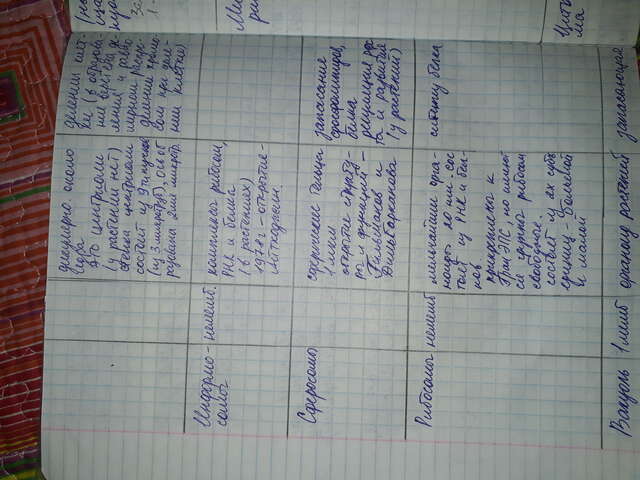 дикулярно. около
ядра
это центриоли
(у растений нет)
стенка центриоли
состоит из 9 пучков
(из 3 микротруб), ось об
разована 2мя микротр.
деления клет-
ки (в образова
ние веретена де
ления и равно
мерном распре-
делении хромо-
сом при деле-
нии клетки)
Информо-
сомы
немемб.
комплексы рибосом,
РНК и белка
(в растениях)
открытие-
Айтхожин.
Сферосомы
сферические тельца
1 мкм
открытие структу-
ры и функций -
Гильманов и
Дильбарканова
запасание
фосфолипидов,
белка
регуляция рос
та и развития
(у растений)
Рибосомы
немемб
мельчайшие орга-
ноиды 20 нм. сос
тоят из РНК и бел-
ков.
прикреплены к
Гран ЭПС, но имеют
ся группы рибосом
свободные.
состоят из 2х субъ
единиц - большой
и малой
синтез белка
Вакуоль
1 мемб
органоид растений
запасающая
Цито
ма